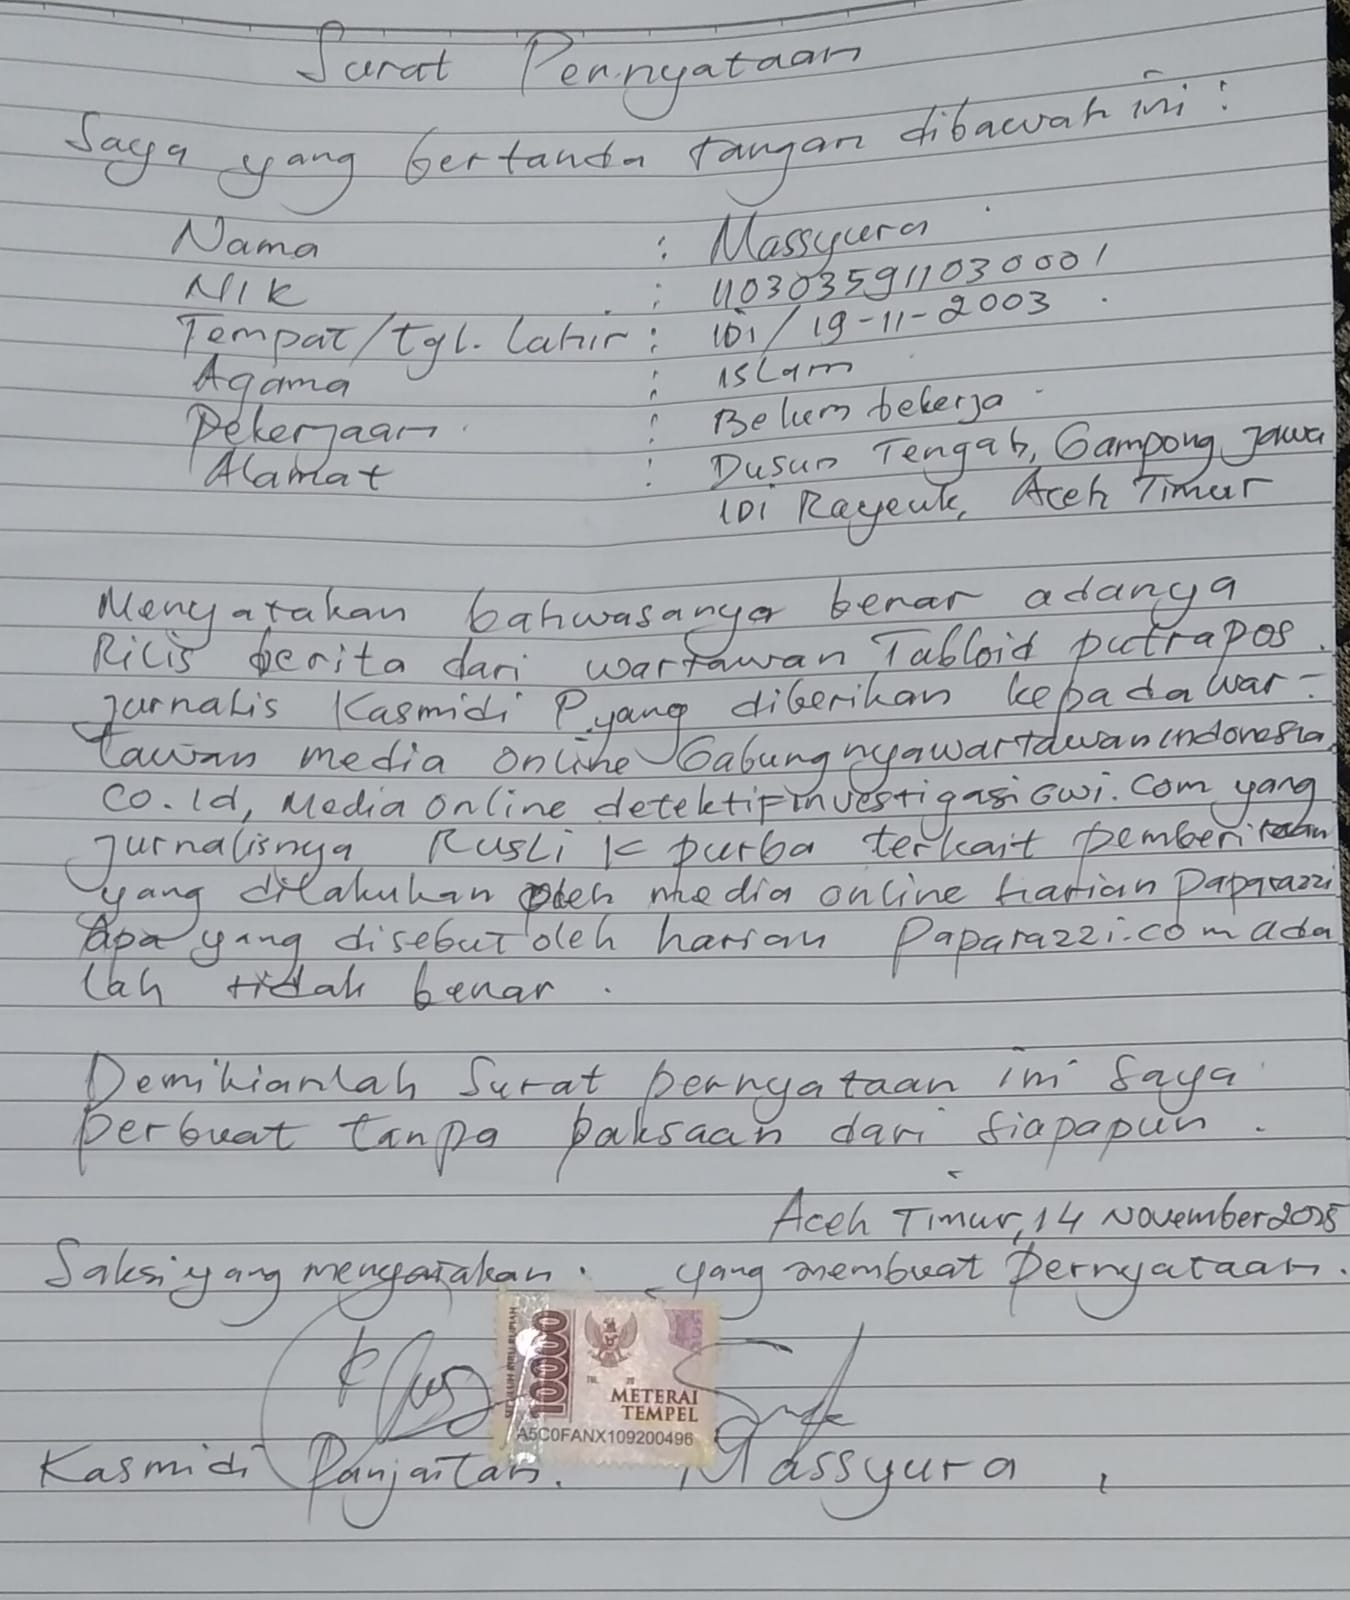 Surat Pernyataan
Saya yang bertanda tangan dibawah ini :
Nama : Massyura
NIK : 1103035911030001
Tempat/tgl. lahir : IDi / 19-11-2003
Agama : ISLam
Pekerjaan : Belum bekerja
Alamat : Dusun Tengah, Gampong Jawa
IDi Rayeuk, Aceh Timur
Menyatakan bahwasanya benar adanya
Rilis berita dari wartawan Tabloid putrapos
jurnalis Kasmidi P. yang diberikan kepada war-
tawan media online Gabungnyawartawanindonesia.
co.Id, Media online detektifinvestigasiGwi.com yang
jurnalisnya Rusli K purba terkait pemberitaan
yang dilakukan oleh media online harian paparazzi
Apa yang disebut oleh harian Paparazzi.com ada
lah tidak benar.
Demikianlah Surat pernyataan ini Saya
perbuat tanpa paksaan dari siapapun.
Aceh Timur, 14 November 2025
Saksi yang mengatakan. yang membuat pernyataan.
SEPULUH RIBU RUPIAH
10000
TGL. 20
METERAI
TEMPEL
A5C0FANX109200496
Kasmidi Panjaitan. Massyura